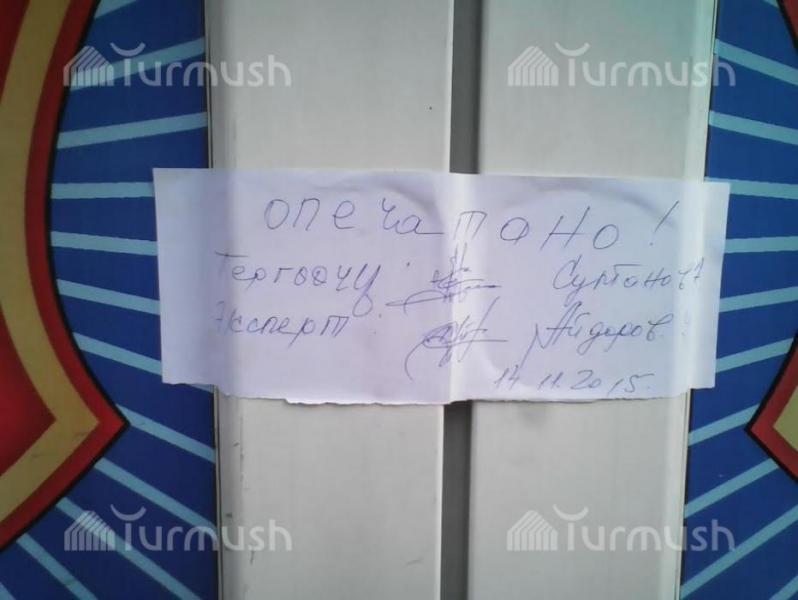 Turmush Turmush
опечатано!
Тергөөчү: Султанов А
Эксперт: Айдаров
14.11.2015.
Turmush Turmush